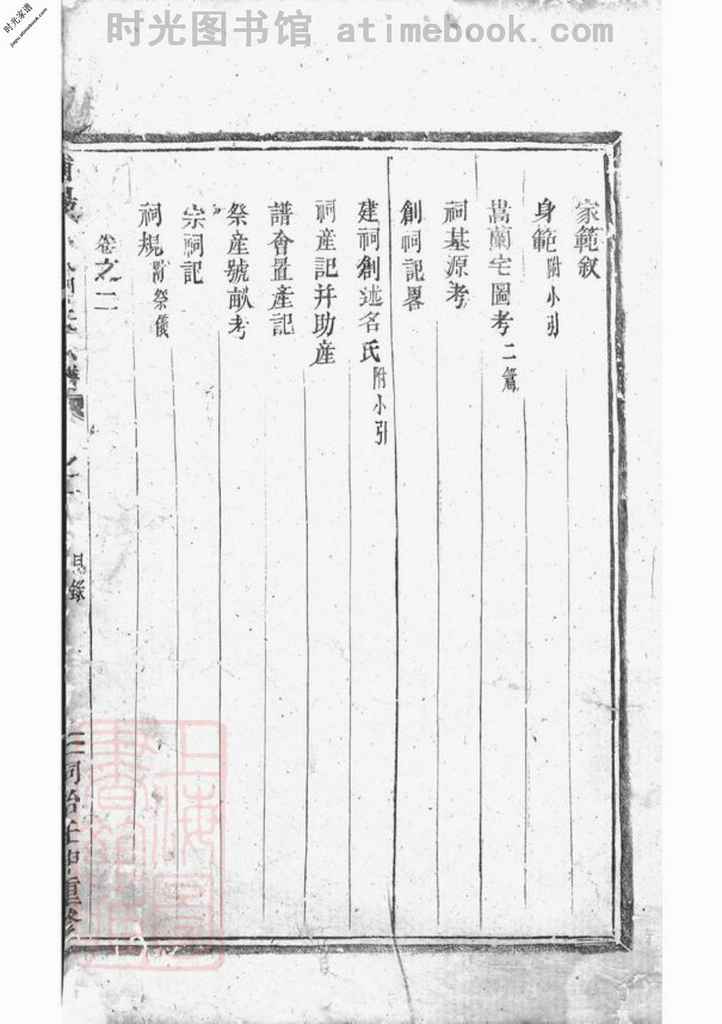 时光图书馆 atimebook.com
时光家谱
jiapu.atimebook.com
家範叙
身範附小引
嵩蘭宅圖考二篇
祠基源考
創祠記畧
建祠創述名氏附小引
祠產記幷助產
譜會置產記
祭產號畝考
宗祠記
祠規附祭儀
卷之二
目錄
同治壬申重修